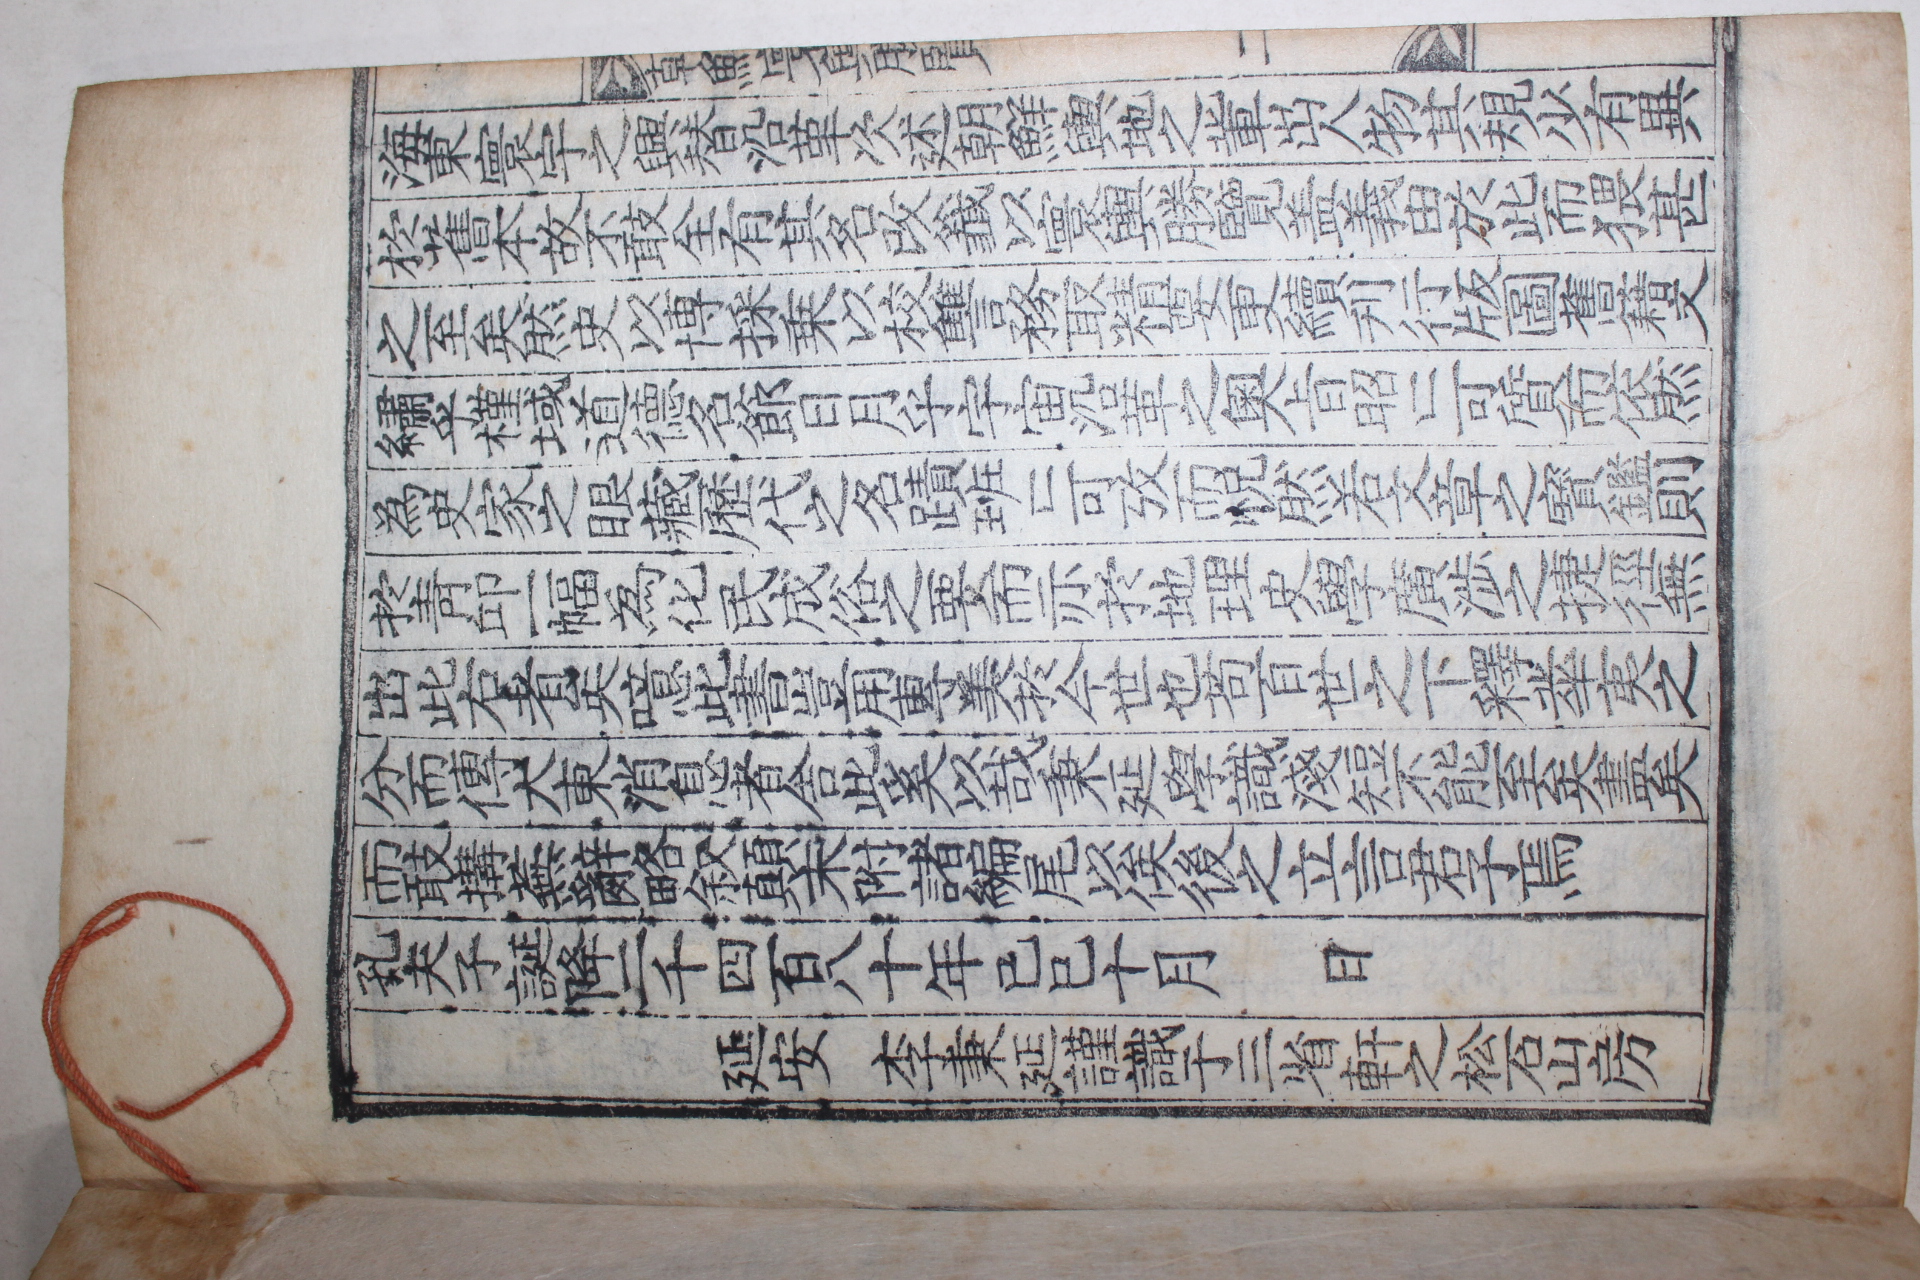 朝鮮寰輿勝覽 二
海東寰宇之興替沿革次述朝鮮輿地之輩出人物其規少有異
於舊本故不敢全有其名改籤以寰輿勝覽盖義由於此而猥甚
之至矣然史以博採乗以校讐務取精要更續刋行版圖舊籍文
繡乎槿域道德名節日月乎宇宙沿革之奧旨昭〻可質而依然
為史家之眼藏歷代之名蹟班〻可攷而怳然若文章之寶鑑則
於青邱一幅為化民成俗之要而亦於地理史學廣涉之捷徑無
出此右者矣噫此書豈用專美於今世也苟百世之下釋華夷之
分而傳大東消息者舍此奚以哉秉延學識淺短不能至矣盡矣
而敢搆蕪辭略叙顛末附諸編尾以俟後之立言君子焉
孔夫子誕降二千四百八十年己巳十月 日
延安 李秉延謹識于三省軒之松石山房